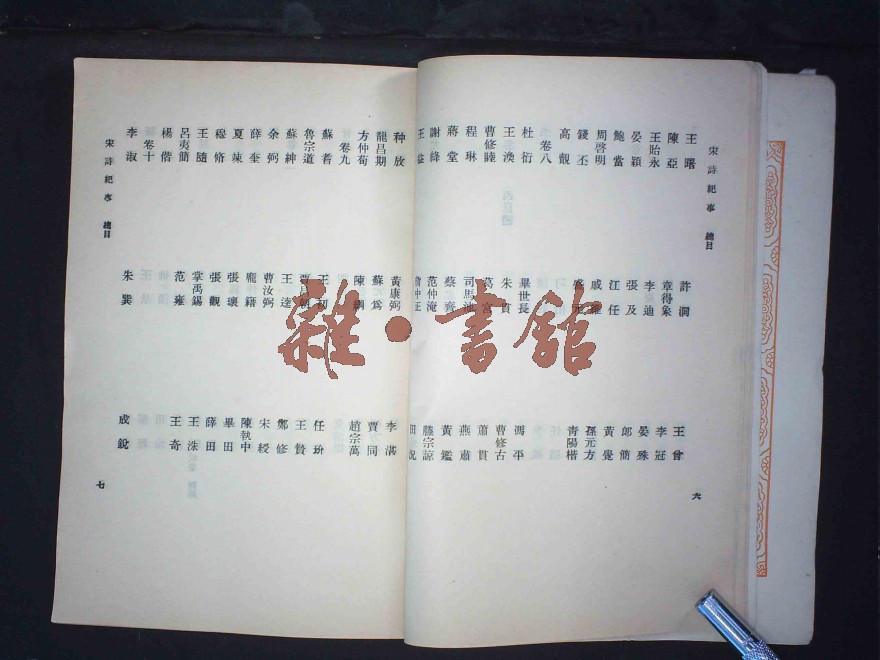 宋詩紀事 總目
王曙 許洞 王曾
陳亞 章得象 李冠
王貽永 李迪 晏殊
晏穎 張及 郎簡
鮑當 江任 黃覺
周啓明 戚維 孫元方
錢丕 盛元 青陽楷
高觀
卷八
杜衍 畢世長 馮平
王渙 朱貫 曹修古
曹修睦 葛宮 蕭貫
程琳 司馬池 燕肅
蔣堂 蔡齊 黃鑑
謝絳 范仲淹 滕宗諒
王益 田況
六
种放 黃康弼 李湛
龍昌期 蘇為 賈同
方仲荀 陳綱 趙宗萬
卷九
蘇耆 王初 任玠
魯宗道 賈昌朝 王贊
蘇紳 王逵 鄭修
余弼 曹汝弼 宋綬
薛奎 龐籍 陳執中
夏竦 張瓌 畢田
穆修 張觀 薛田
王隨 掌禹錫 王洙
呂夷簡 范雍 王奇
楊偕
卷十
李淑 朱巽 成銳
宋詩紀事 總目
七
雜·書館